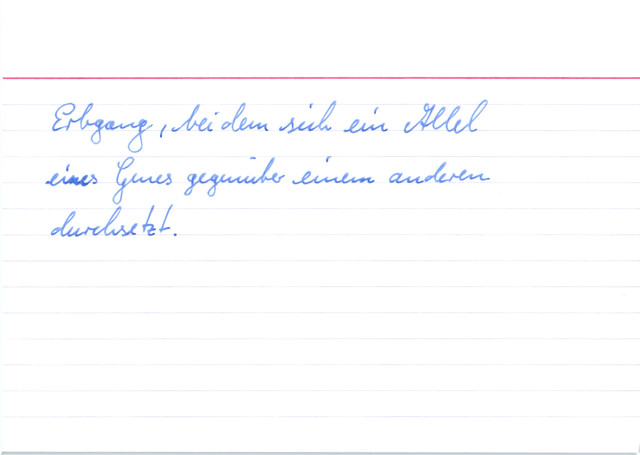 Erbgang, bei dem sich ein Allel
eines Genes gegenüber einem anderen
durchsetzt.